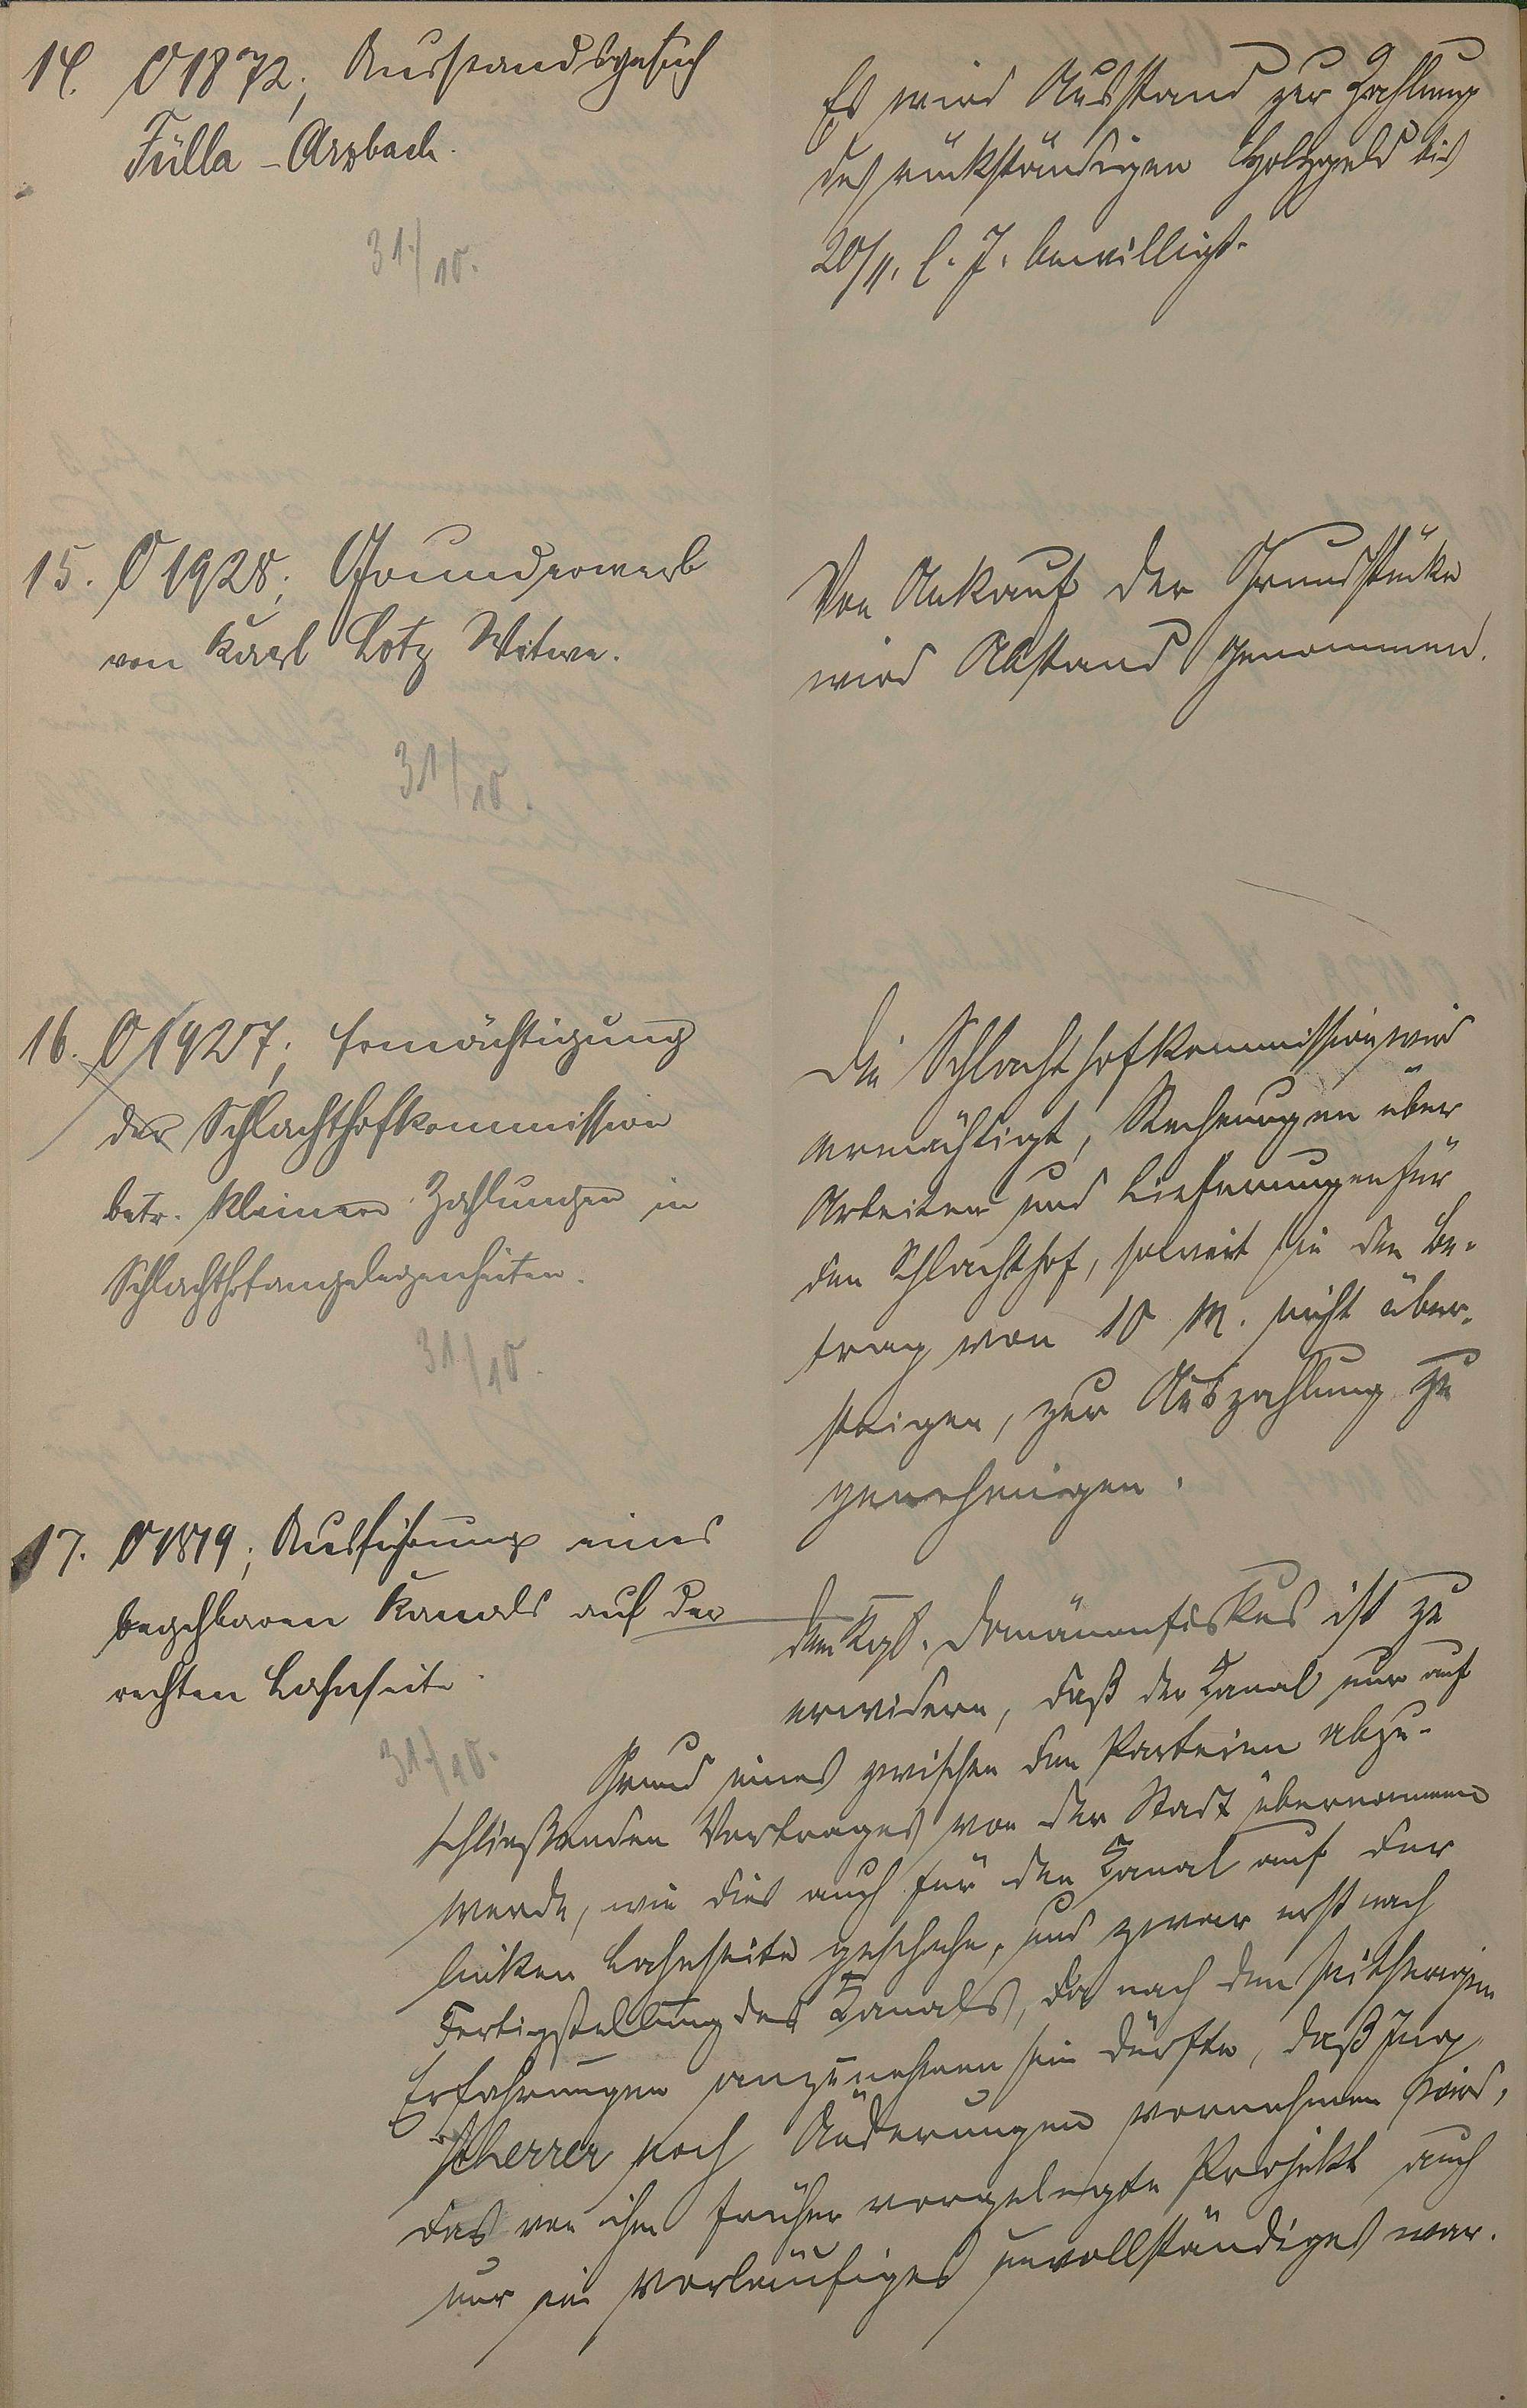 14. O 1872; Ausstandsgesuch
Fülla - Arzbach.
31./10.
Es wird Ausstand zur Zahlung
des rückständigen Holzgeld bis
20/11. l. J. bewilligt.
15. O 1928; Grunderwerb
von Karl Lotz Witwe.
31/10.
Von Ankauf der Grundstücke
wird Abstand genommen.
16. O 1927; Ermächtigung
der Schlachthofkommission
betr. kleinere Zahlungen in
Schlachthofangelegenheiten.
31./10.
Die Schlachthofkommission wird
ermächtigt, Rechnungen über
Arbeiten und Lieferungen für
den Schlachthof, soweit sie den Be-
trag von 10 M. nicht über-
steigen, zur Auszahlung zu
genehmigen.
17. O 1819; Ausführung eines
begehbaren Kanals auf der
rechten Lahnseite.
31./10.
Dem Kgl. Domänenfiskus ist zu
erwidern, daß der Kanal nur auf
Grund eines zwischen den Parteien abzu-
schließenden Vertrages von der Stadt übernommen
werde, wie dies auch für den Kanal auf der
linken Lahnseite geschehe, und zwar erst nach
Fertigstellung des Kanals, da nach den seitherigen
Erfahrungen anzunehmen sein dürfte, daß Ing.
Scherrer noch Änderungen vornehmen wird,
das von ihm früher vorgelegte Projekt auch
nur ein vorläufiges unvollständiges war.